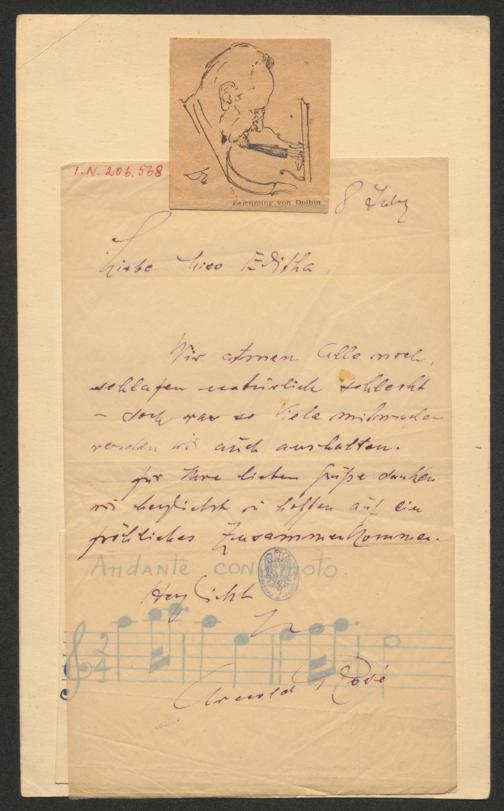 Zeichnung von Dolbin
I.N. 206.568
8 July
Liebe Miss Editha,
Wir atmen Alle noch,
schlafen natürlich schlecht
– doch was so Viele mitmachen
werden wir auch aushalten.
Für Ihre lieben Grüße danken
wir herzlichst u hoffen auf ein
fröhliches Zusammenkommen.
Andante con moto.
Herzlichst
Ihr
Arnold Rosé